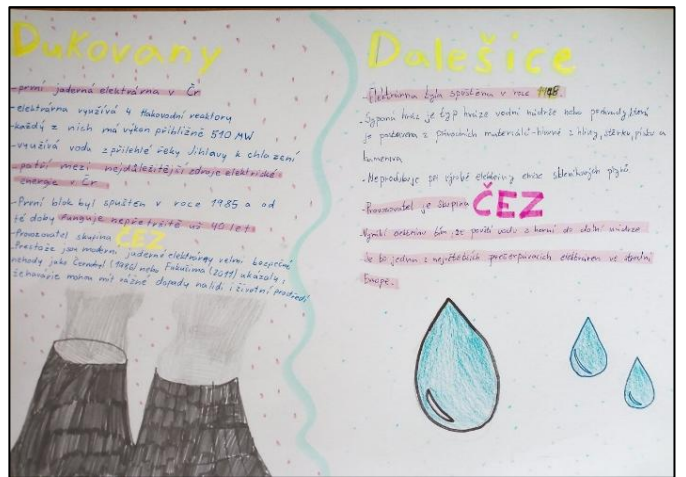 Dukovany
-první jaderná elektrárna v Čr
-elektrárna využívá 4 tlakovodní reaktory
-každý z nich má výkon přibližně 510 MW
-využívá vodu z přilehlé řeky Jihlavy k chlazení
-patří mezi nejdůležitější zdroje elektrické
energie v Čr.
-První blok byl spuštěn v roce 1985 a od
té doby funguje nepřetržitě už 40 let
-Provozovatel skupina ČEZ
-Přestože jsou moderní jaderné elektrárny velmi bezpečné
nehody jako Černobyl (1986) nebo Fukušima (2011) ukázaly,
že havárie mohou mít vážné dopady na lidi i životní prostředí
Dalešice
-Elektrárna byla spuštěna v roce 1978.
-Sypaná hráz je typ hráze vodní nádrže nebo přehrady, která
je postavena z přírodních materiálů-hlavně z hlíny, štěrku, písku a
kameniva
-Neprodukuje při výrobě elektřiny emise skleníkových plynů
-Provozovatel je skupina ČEZ
Vyrábí elektřinu tím, že pouští vodu z horní do dolní nádrže
Je to jedna z největších přečerpávacích elektráren ve střední
Evropě.